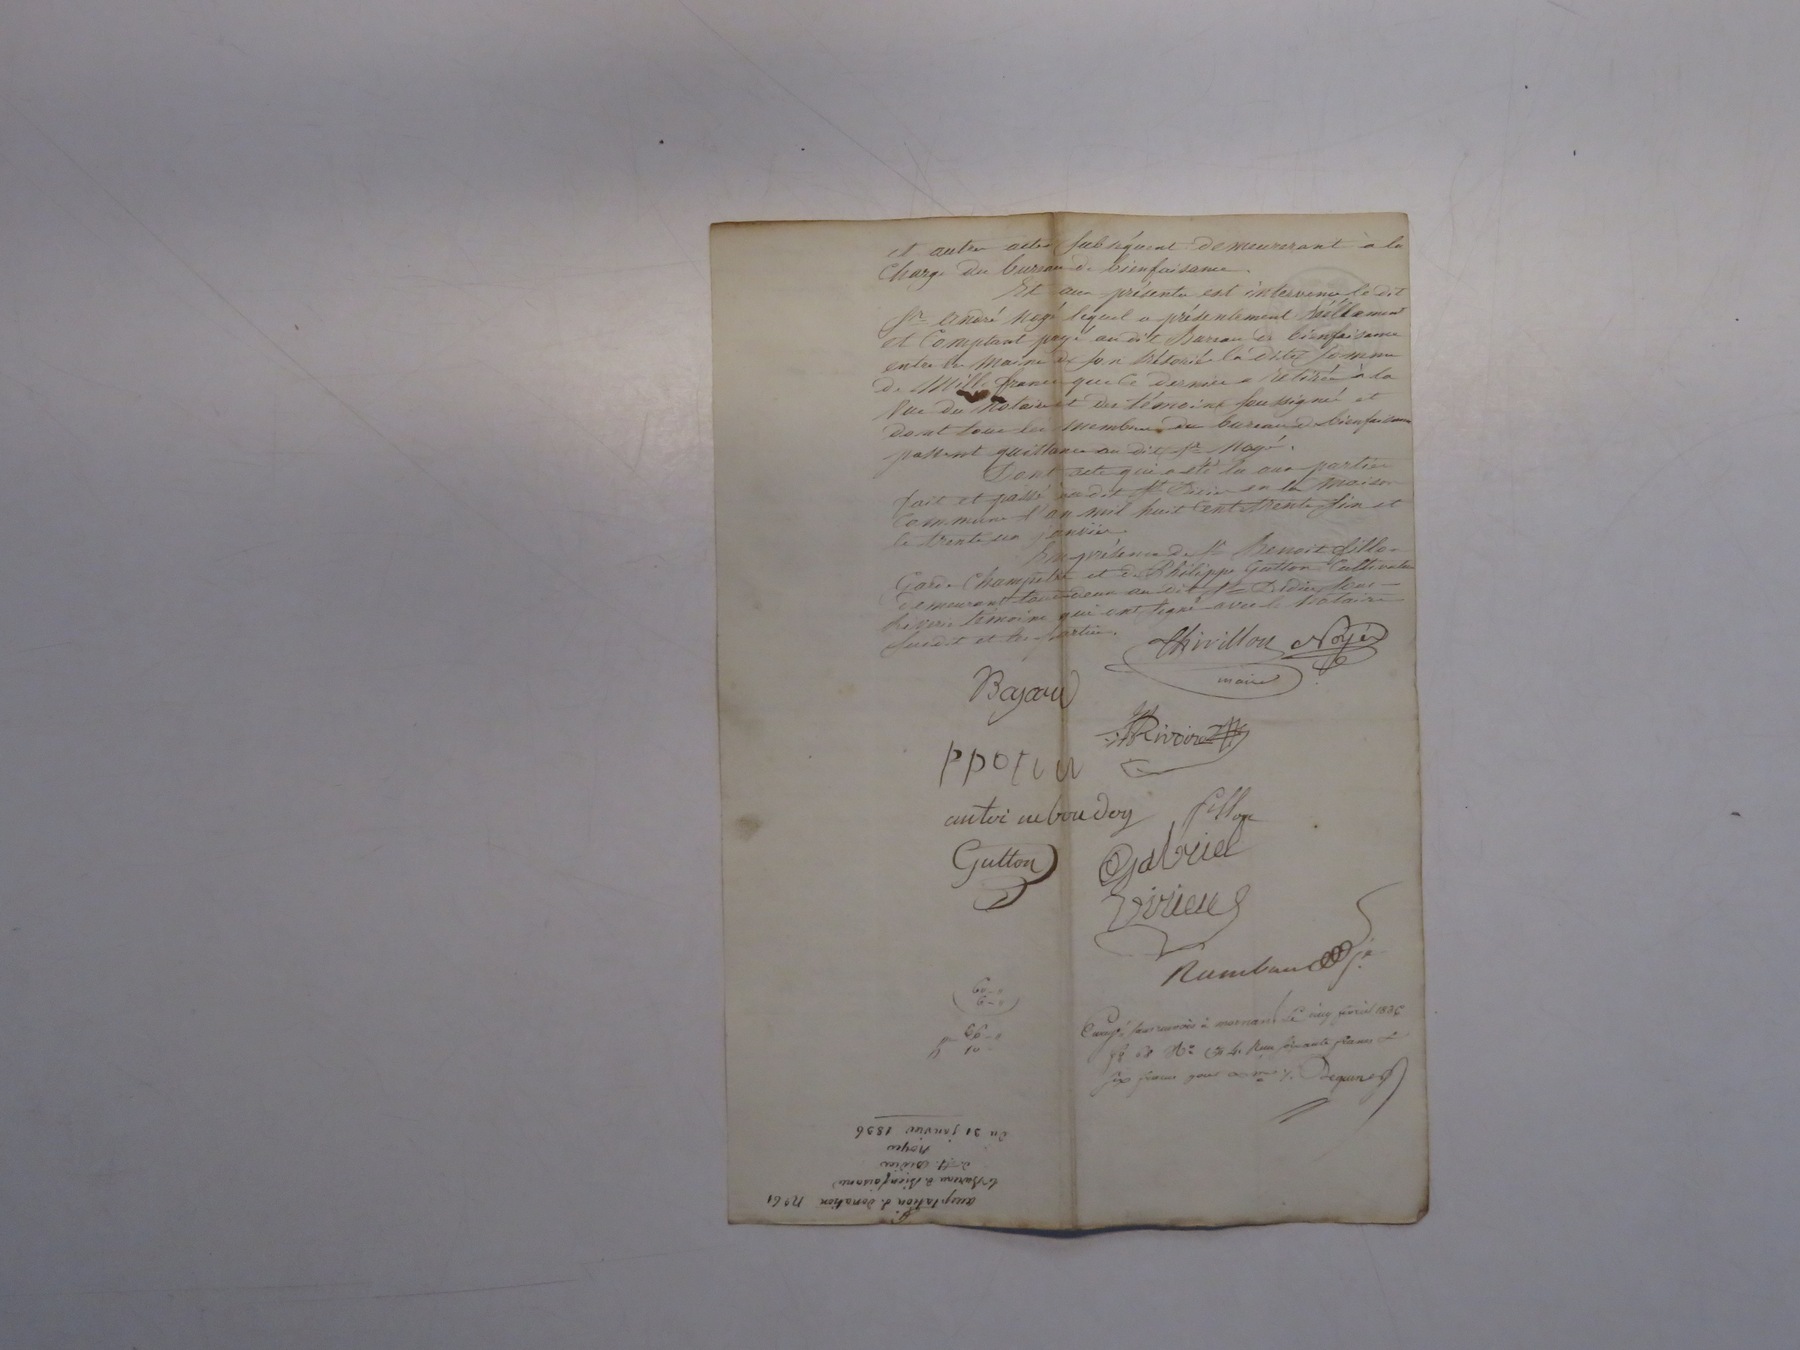 et autre actes subséquent demeurerant à la
Charge du bureau de bienfaisance.
Et aux présente est intervenu le dit
Sr. André Noyé lequel a présentement réellement
et Comptant payé au dit Bureau de bienfaisance
entre les mains de son trésorié la dites somme
de Mille francs que ce dernier a retirée à la
Vue du Notaire et des témoins soussigné et
dont tous les membres du bureau de bienfaisance
passent quittance au dit Sr. Noyé.
Dont acte qui a été lu aux parties
fait et passé au dit St. Didier en la maison
Commune l'an mil huit cent trente six et
le trente un janvier.
En présence de Sr. Benoit fillon
Garde Champêtre et de Philippe Gutton Cultivateur
demeurant tous deux au dit St. Didier Sous
Riverie témoins qui ont signé avec le Notaire
susdit et les parties.
Thivillon Noyér
maire
Bajard
Rivoire
antoi ne boudoy fillon
Gutton Gabriel
Vivien
Rambaud
Enregé. sans renvoi à mornant le cinq février 1836
fo. Ro. No. Reçu soixante francs et
six francs pour
acceptation de donation No 61
le Bureau de Bienfaisance
de St. Didier
Noyer
du 31 janvier 1836